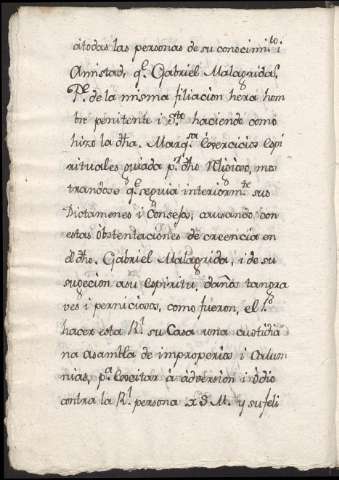 átodas las personas de su conocim.to i
Amistad, q.e Gabriel Malagrida,
P.e de la misma filiacion hera hom
bre penitente i S.to haciendo como
hizo la dha. Marq.sa Exercicios Espi
rituales guiada p.r dho Religioso, mos
trandose q.e seguia interiorm.te sus
Dictamenes i Consejos, causando con
estas obstentaciones de creencia en
el dho. Gabriel Malagrida, i de su
sugecion asu Espiritu, daños tan gra
ves i perniciosos, como fueron, el 1.o
hacer esta R.l su Casa una cuotidia
na Asamblea de improperios i Calum
nias, p.a Excitar à adversion i ôdio
contra la R.l persona de S. M. y su feli